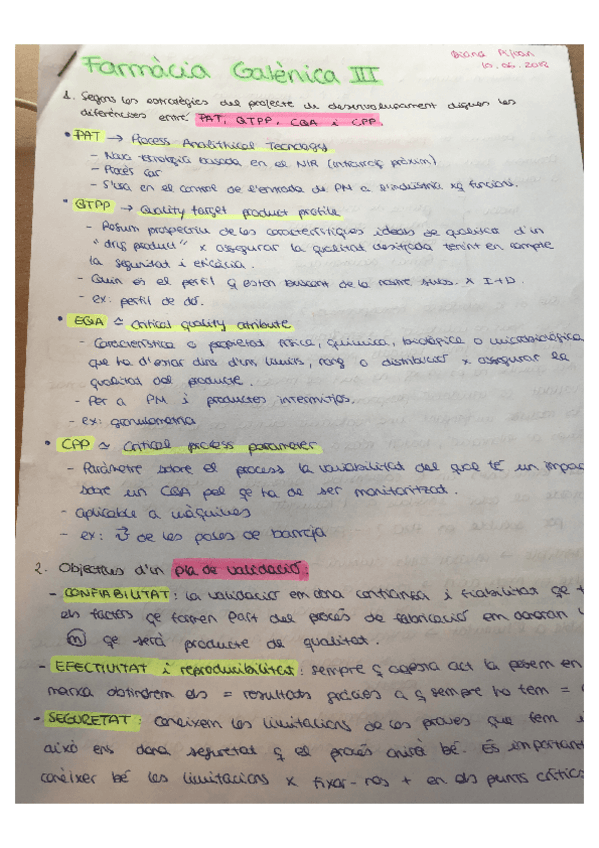 Farmàcia Galènica III
10.06.2018
1. Segons les estratègies del projecte de desenvolupament digues les
diferències entre PAT, QTPP, CQA i CPP.
• PAT → Process Analithical Tecnology
- Nova basada en el NIR (infraroig pròxim)
- Procés car
- S'usa en el control de l'entrada de PM a l'indústria xq funcioni.
• QTPP → Quality target product profile
- Resum prospectiu de les característiques ideals de qualitat d'un
"drug product" x assegurar la qualitat desitjada tenint en compte
la seguritat i eficàcia.
- Quin és el perfil q estan buscant de la nostre subs. x I+D.
- ex: perfil de
• CQA ≃ Critical quality attribute
- Característica o propietat física, química, biològica o microbiològica
que ha d'estar dins d'uns límits, rang o distribució x assegurar la
qualitat del producte.
- Per a PM i productes intermitjos.
- ex: granulometria
• CPP ≃ Critical process parameter
- Paràmetre sobre el process la variabilitat del qual té un impac
sobre un CQA pel qe ha de ser monitoritzat.
- aplicable a màquines
- ex: v de les pales de barreja
2. Objectius d'un pla de validació
- CONFIABILITAT: la validació em dona confiança i fiabilitat qe t
els factors qe formen part del procés de fabricació em donaran
m qe serà producte de qualitat.
- EFECTIVITAT i reproducibilitat: sempre q aquesta act la posem en
marxa obtindrem els = resultats gràcies a q sempre ho fem =
- SEGURETAT: coneixem les limitacions de les proves que fem i
això ens dona seguretat q el procés anirà bé. És important
conèixer bé les limitacions x fixar-nos + en els punts crítics